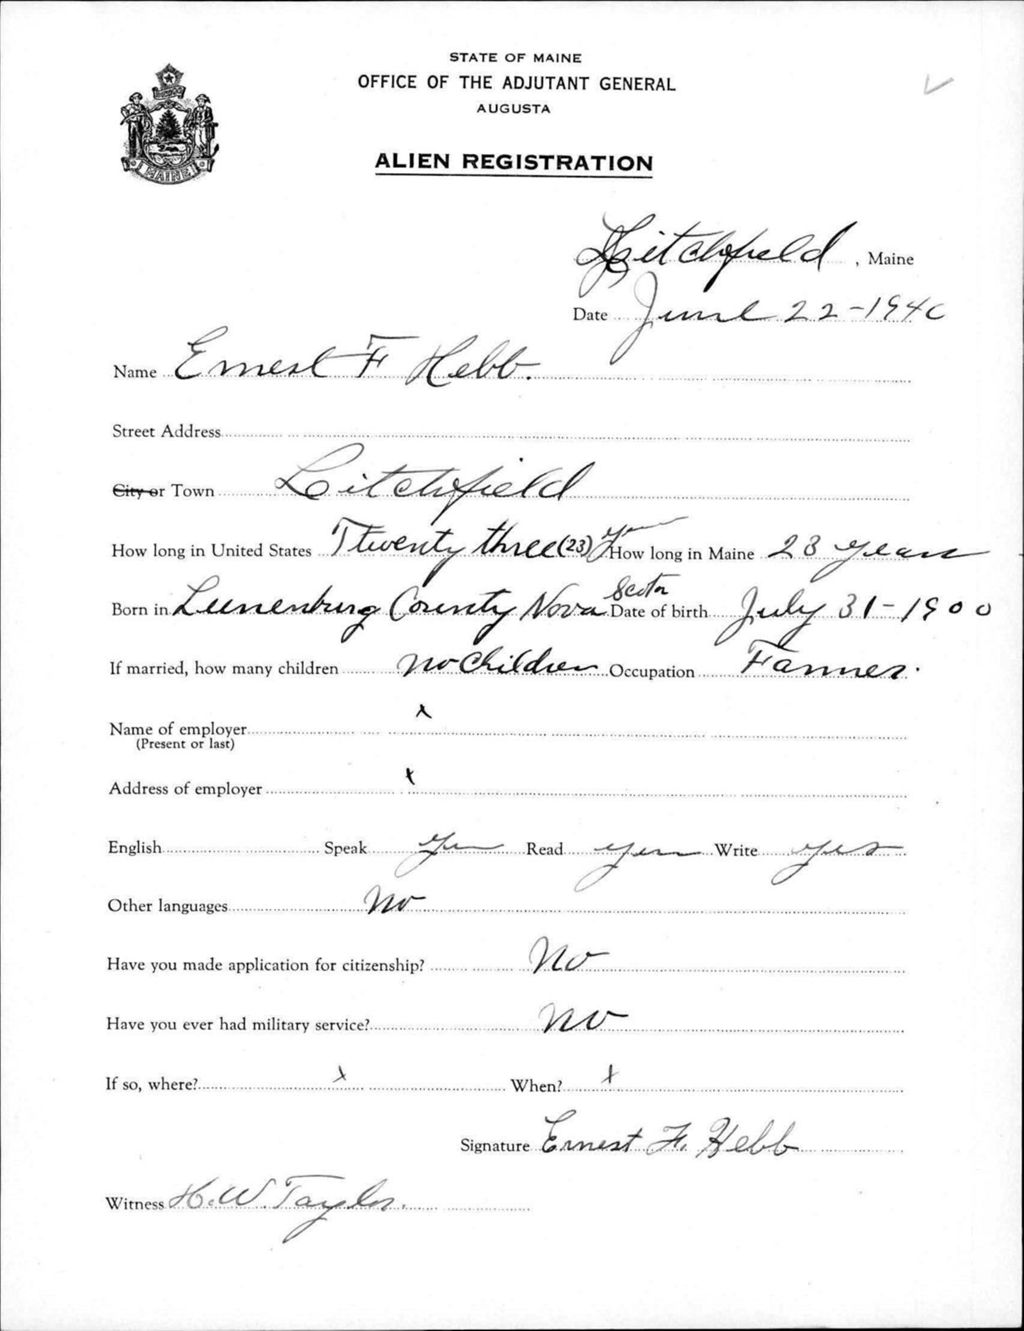 STATE OF MAINE
OFFICE OF THE ADJUTANT GENERAL
AUGUSTA
ALIEN REGISTRATION
MAINE
Litchfield, Maine
Date June 22-1940
Name Ernest F Hebb.
Street Address
City or Town Litchfield
How long in United States Twenty three (23) Years How long in Maine 23 years
Born in Lunenburg County Nova Scotia Date of birth July 31-1900
If married, how many children no Children Occupation Farmer.
Name of employer x
(Present or last)
Address of employer x
English Speak yes Read yes Write yes
Other languages No
Have you made application for citizenship? No
Have you ever had military service? No
If so, where? x When? x
Signature Ernest F. Hebb
Witness H. W. Taylor.